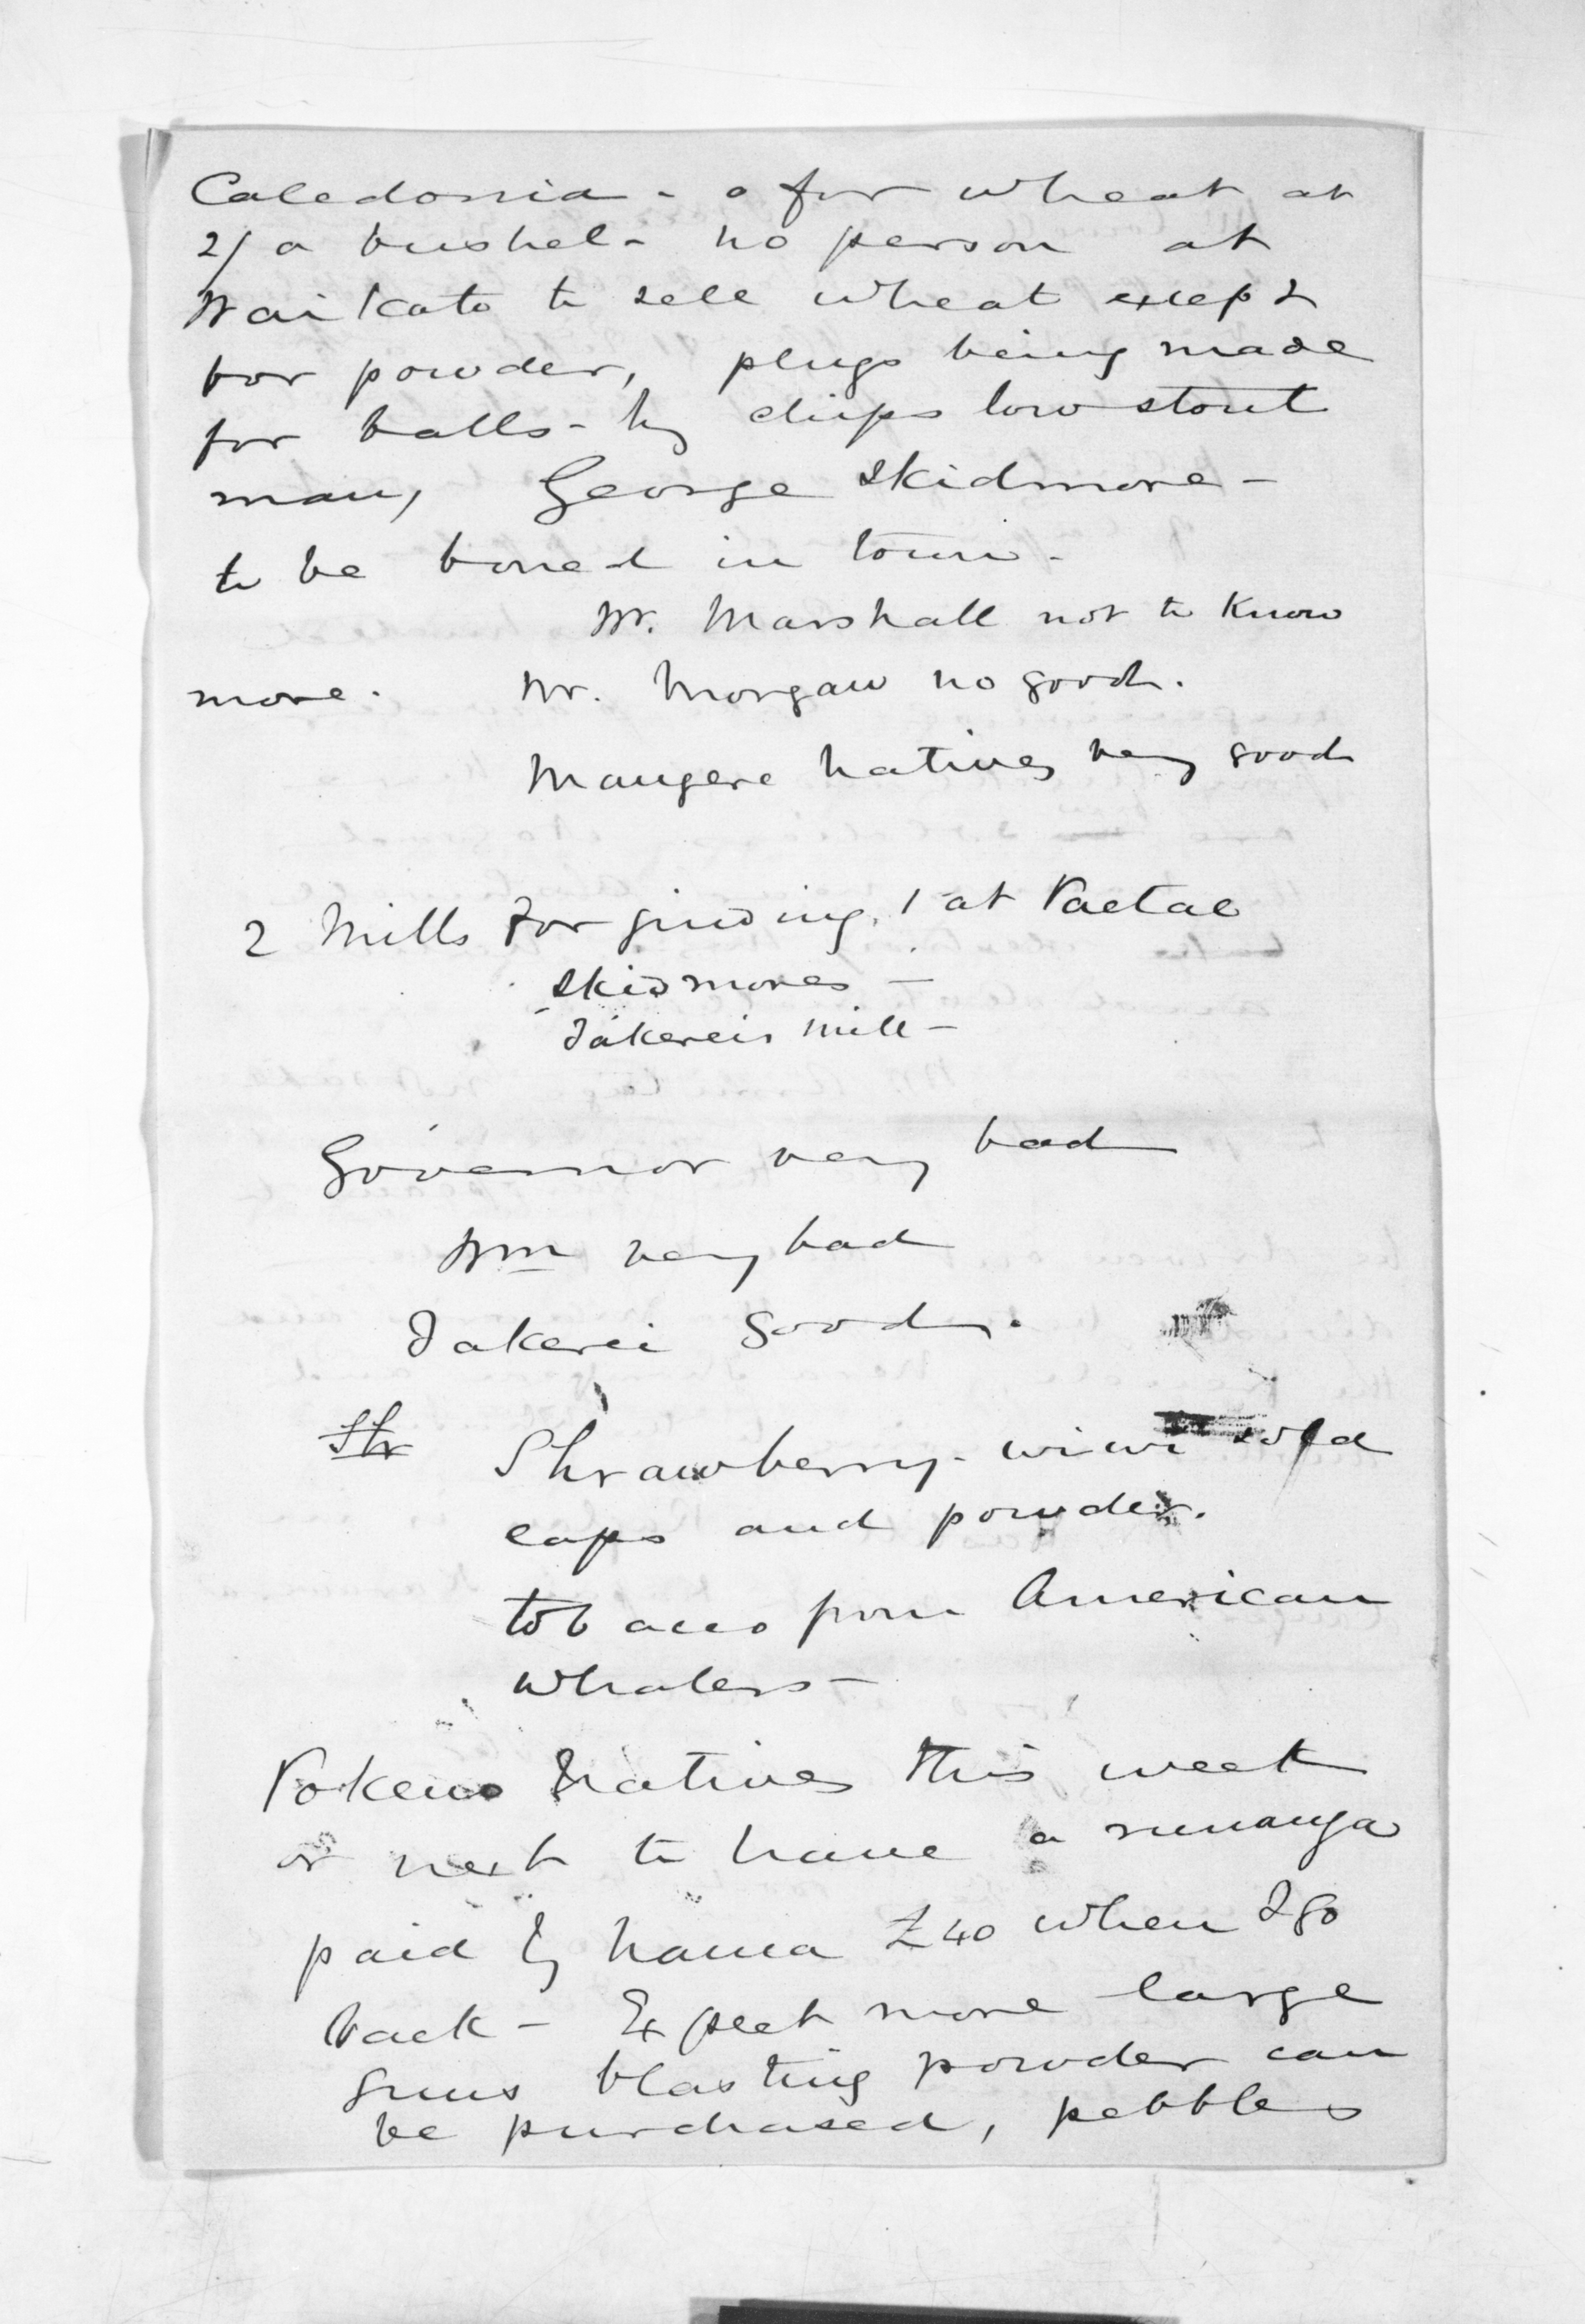 Caledonia - o for wheat at
2/ a bushel - no person at
Waikato to sell wheat except
for powder, plugs being made
for balls - by chips low stout
man, George Skidmore -
to be bored in town -
Mr. Marshall not to know
more. Mr. Morgan no good.
Mangere natives very good
2 Mills for grinding, 1 at
Skidmores -
Takereis mill -
Governor very bad
Wm very bad
Takerei good.
Str Strawberry - wiwi sold
caps and powder.
tobacco from American
whalers -
Pokeno natives this week
or next to have a runanga
paid by £40 when I go
back - Expect more large
guns blasting powder can
be purchased, pebbles